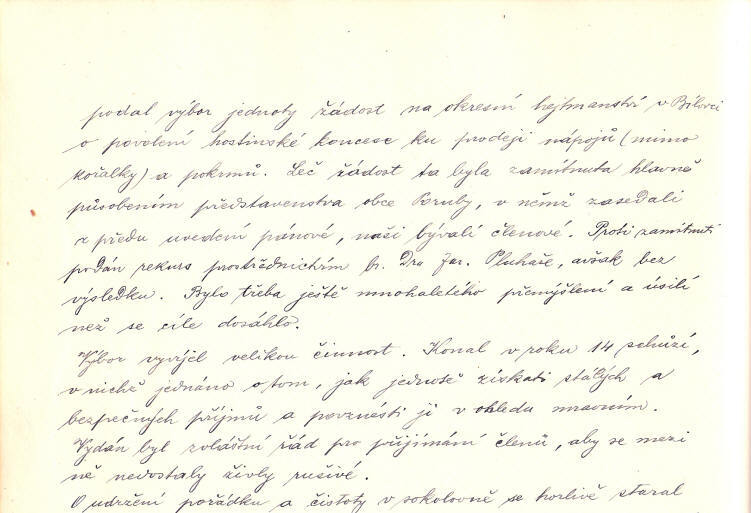 podal výbor jednoty žádost na okresní hejtmanství v Bílovci
o povolení hostinské koncese ku prodeji nápojů (mimo
kořalky) a pokrmů. Leč žádost ta byla zamítnuta hlavně
působením představenstva obce Poruby, v němž zasedali
z předu uvedení pánové, naši bývalí členové. Proti zamítnutí
podán rekurs prostřednictvím br. Dra Jar. Pluhaře, avšak bez
výsledku. Bylo třeba ještě mnohaletého přemýšlení a úsilí
než se cíle dosáhlo.
Výbor vyvíjel velikou činnost. Konal v roku 14 schůzí,
v nichž jednáno o tom, jak jednotě získati stálých a
bezpečných příjmů a povznésti ji v ohledu mravním.
Vydán byl zvláštní řád pro přijímání členů, aby se mezi
ně nedostaly živly rušivé.
O udržení pořádku a čistoty v sokolovně se horlivě staral